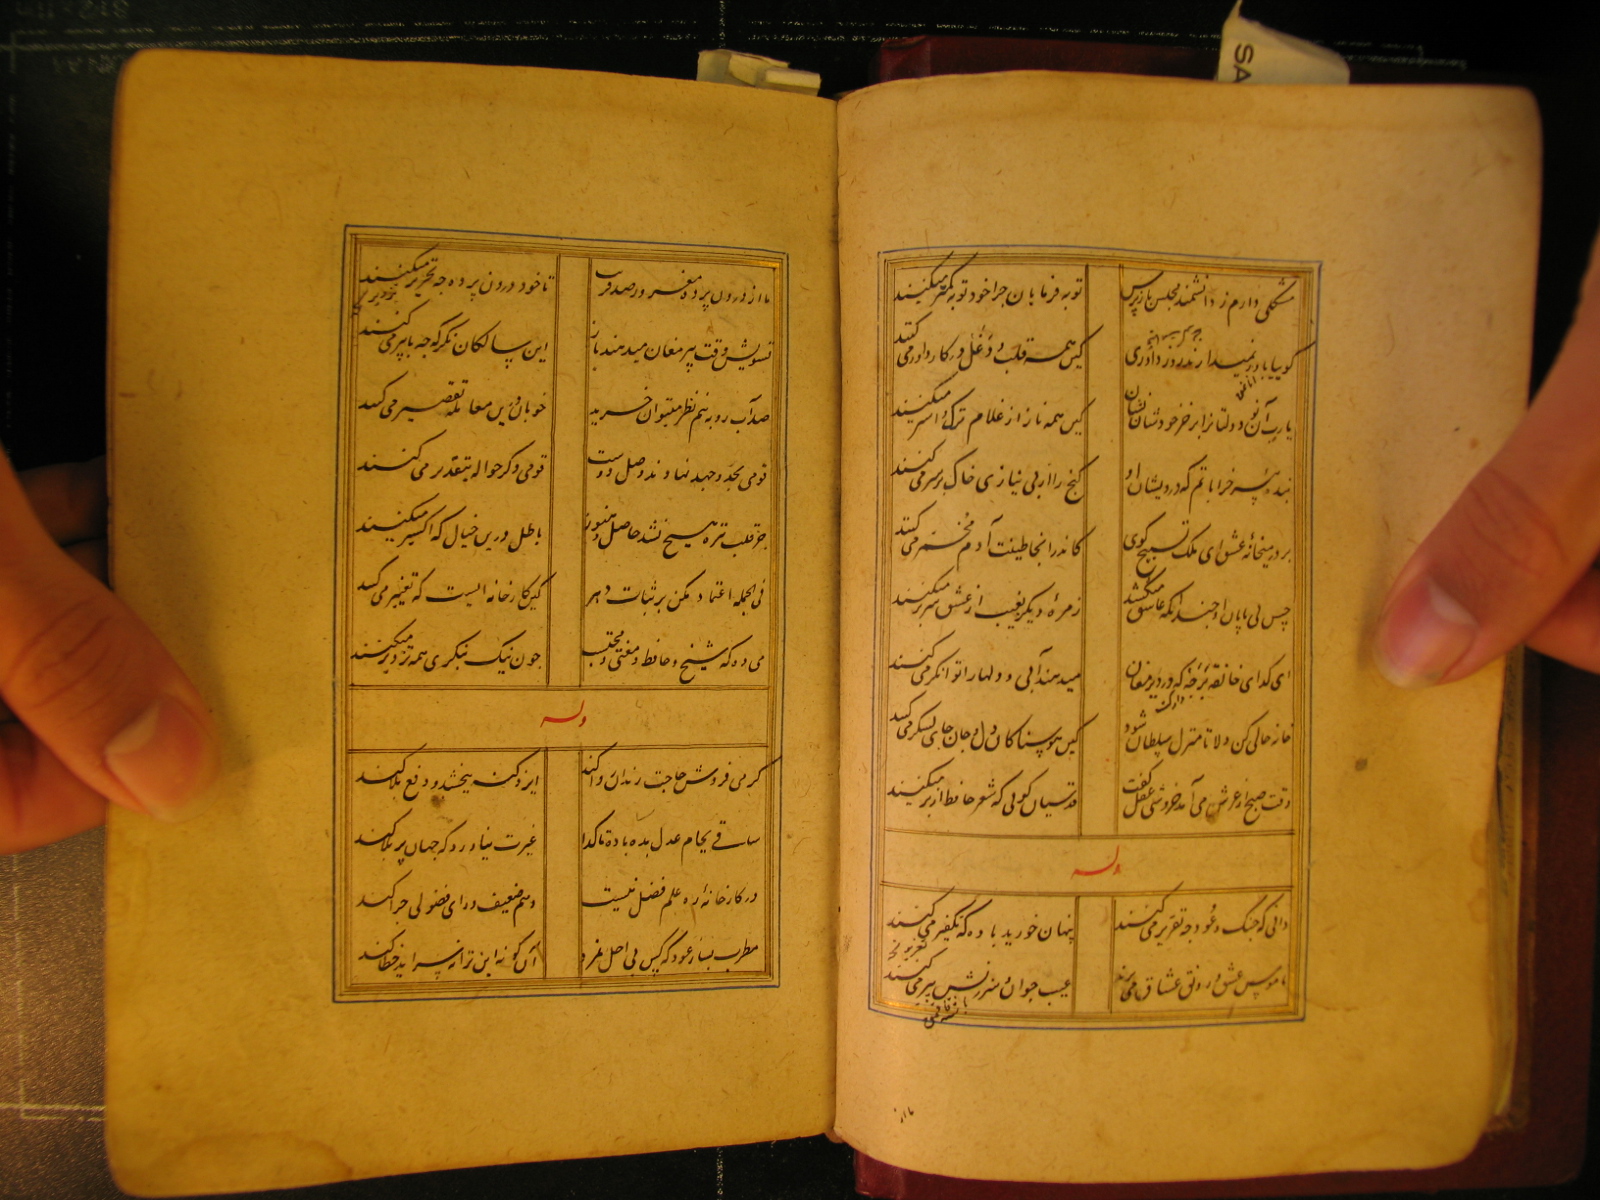 مشکلی دارم ز دانشمند مجلس باز پرس
توبه فرمایان چرا خود توبه کمتر میکنند
گوییا باور نمیدارند روز داوری
کین همه قلب و دغل در کار داور می کنند
یا رب آن نو دولتانرا بر خر خودشان نشان
کین همه ناز از غلام ترک و استر میکنند
بنده پیر خراباتم که درویشان او
گنج را از بی نیازی خاک بر سر می کنند
بر در میخانه عشق ای ملک تسبیح گوی
کاندر انجا طینت آدم مخمر می کنند
حسن بی پایان او چندانکه عاشق میکشد
زمره دیگر بغیب از عشق سر بر میکنند
ای گدای خانقه برجه که در دیر مغان
میدهند آبی و دلها را توانگر می کنند
خانه خالی کن دلا تا منزل سلطان شود
کین هوسناکان دل و جان جای لشکر می کنند
وقت صبح از عرش می آمد خروشی عقل گفت
قدسیان گویی که شعر حافظ از بر میکنند
وله
دانی که چنک و عود چه تقریر می کنند
پنهان خورید باده که تکفیر می کنند
ناموس عشق و رونق عشاق می برند
عیب جوان و سرزنش پیر می کنند
ما از
ما از درون پرده مغرور صد فریب
تا خود درون پرده چه تحریر میکنند
تشویش وقت پیر مغان میدهند باز
این سالکان نگر که چه با پیر می کنند
صد آب رو به نیم نظر میتوان خرید
خوبان درین معامله تقصیر می کنند
قومی بجد و جهد نهادند وصل دوست
قومی دگر حواله بتقدیر می کنند
جز قلب تیره هیچ نشد حاصل و هنوز
باطل درین خیال که اکسیر میکنند
فی الجمله اعتماد مکن بر ثبات دهر
کین کارخانه ایست که تغییر می کنند
می ده که شیخ و حافظ و مفتی و محتسب
چون نیک بنگری همه تزویر میکنند
وله
گر می فروش حاجت رندان روا کند
ایزد گنه ببخشد و دفع بلا کند
ساقی بجام عدل بده باده تا گدا
غیرت نیاورد که جهان پر بلا کند
در کارخانه ره علم فضل نیست
وهم ضعیف و رای فضولی چرا کند
مطرب بساز عود که کس بی اجل نمرد
آن کو نه این ترانه سراید خطا کند